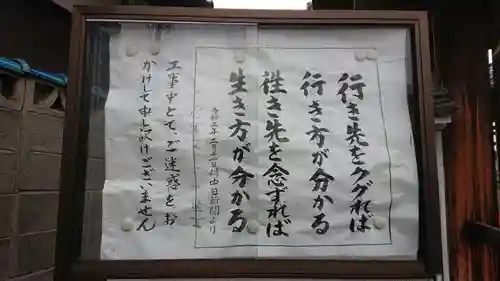 行き先をググれば
行き方が分かる
往き先を念ずれば
生き方が分かる
令和二年二月十二日付中日新聞より
工事中とて、ご迷惑をお
かけして申し訳けございません